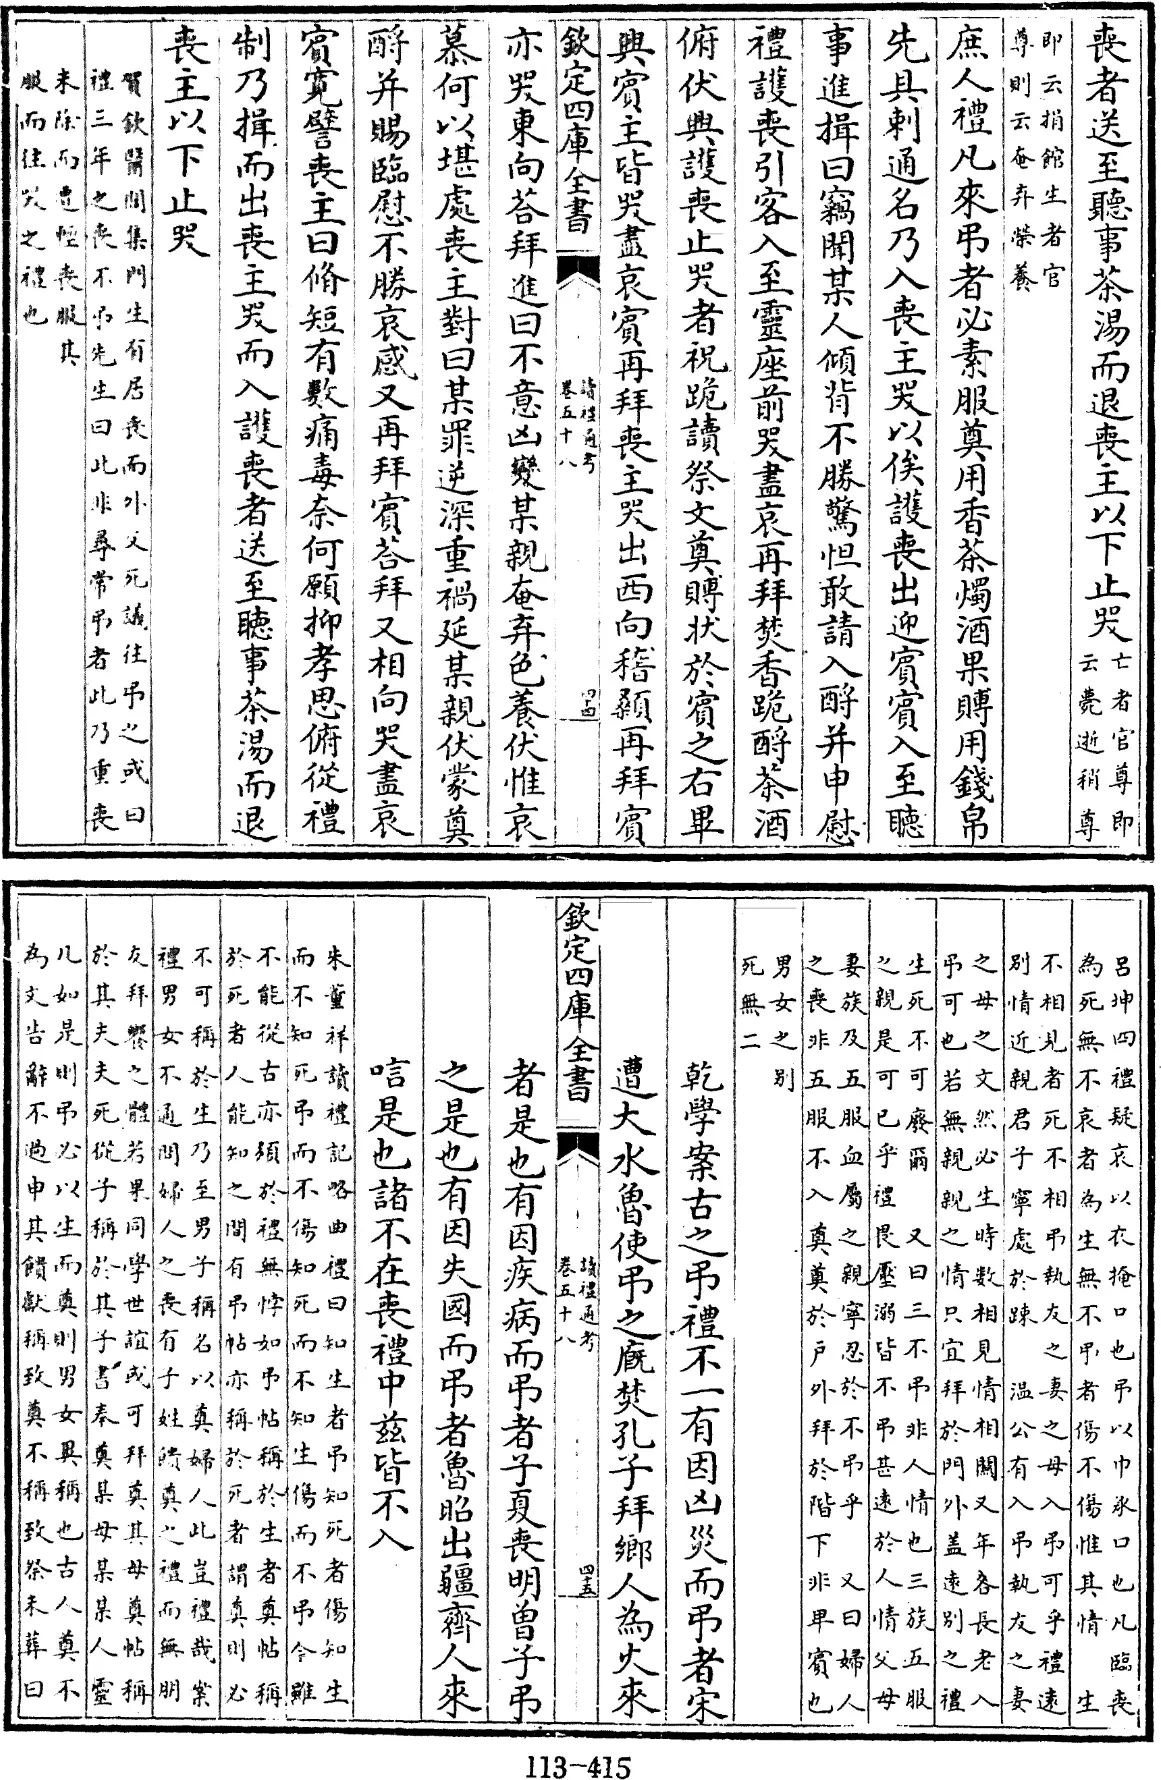 喪者送至聽事茶湯而退喪主以下止哭亡者官尊即
云薨逝稍尊
即云捐館生者官
尊則云奄弃榮養
庶人禮凡來弔者必素服奠用香茶燭酒果賻用錢帛
先具刺通名乃入喪主哭以俟護喪出迎賓賓入至聽
事進揖曰竊聞某人傾背不勝驚怛敢請入酹并申慰
禮護喪引客入至靈座前哭盡哀再拜焚香跪酹茶酒
俯伏興護喪止哭者祝跪讀祭文奠賻狀於賓之右畢
興賓主皆哭盡哀賓再拜喪主哭出西向稽顙再拜賓
欽定四庫全書
讀禮通考
卷五十八
四十四
亦哭東向荅拜進曰不意凶變某親奄弃色養伏惟哀
慕何以堪處喪主對曰某罪逆深重禍延某親伏蒙奠
酹并賜臨慰不勝哀感又再拜賓荅拜又相向哭盡哀
賓寬譬喪主曰脩短有數痛毒奈何願抑孝思俯從禮
制乃揖而出喪主哭而入護喪者送至聽事茶湯而退
喪主以下止哭
賀欽醫閭集門生有居喪而外父死議往弔之或曰
禮三年之喪不弔先生曰此非尋常弔者此乃重喪
未除而遭輕喪服其
服而往哭之禮也
呂坤四禮疑哀以衣掩口也弔以巾承口也凡臨喪
為死無不哀者為生無不弔者傷不傷惟其情 生
不相見者死不相弔執友之妻之母入弔可乎禮遠
別情近親君子寧處於踈 溫公有入弔執友之妻
之母之文然必生時數相見情相關又年各長老入
弔可也若無親親之情只宜拜於門外盖遠別之禮
生死不可廢爾 又曰三不弔非人情也三族五服
之親是可已乎禮畏壓溺皆不弔甚遠於人情父母
妻族及五服血屬之親寧忍於不弔乎 又曰婦人
之喪非五服不入奠奠於戶外拜於階下非卑賓也
男女之別
死無二
乾學案古之弔禮不一有因凶災而弔者宋
遭大水魯使弔之廐焚孔子拜鄉人為火來
欽定四庫全書
讀禮通考
卷五十八
四十五
者是也有因疾病而弔者子夏喪明曾子弔
之是也有因失國而弔者魯昭出疆齊人來
唁是也諸不在喪禮中茲皆不入
朱董祥讀禮記略曲禮曰知生者弔知死者傷知生
而不知死弔而不傷知死而不知生傷而不弔今雖
不能從古亦須於禮無悖如弔帖稱於生者奠帖稱
於死者人能知之間有弔帖亦稱於死者謂奠則必
不可稱於生乃至男子稱名以奠婦人此豈禮哉案
禮男女不通問婦人之喪有子姓饋奠之禮而無朋
友拜饗之體若果同學世誼或可拜奠其母奠帖稱
於其夫夫死從子稱於其子書奉奠某母某某人靈
几如是則弔必以生而奠則男女異稱也古人奠不
為文告辭不過申其饋獻稱致奠不稱致祭未葬曰
113-415